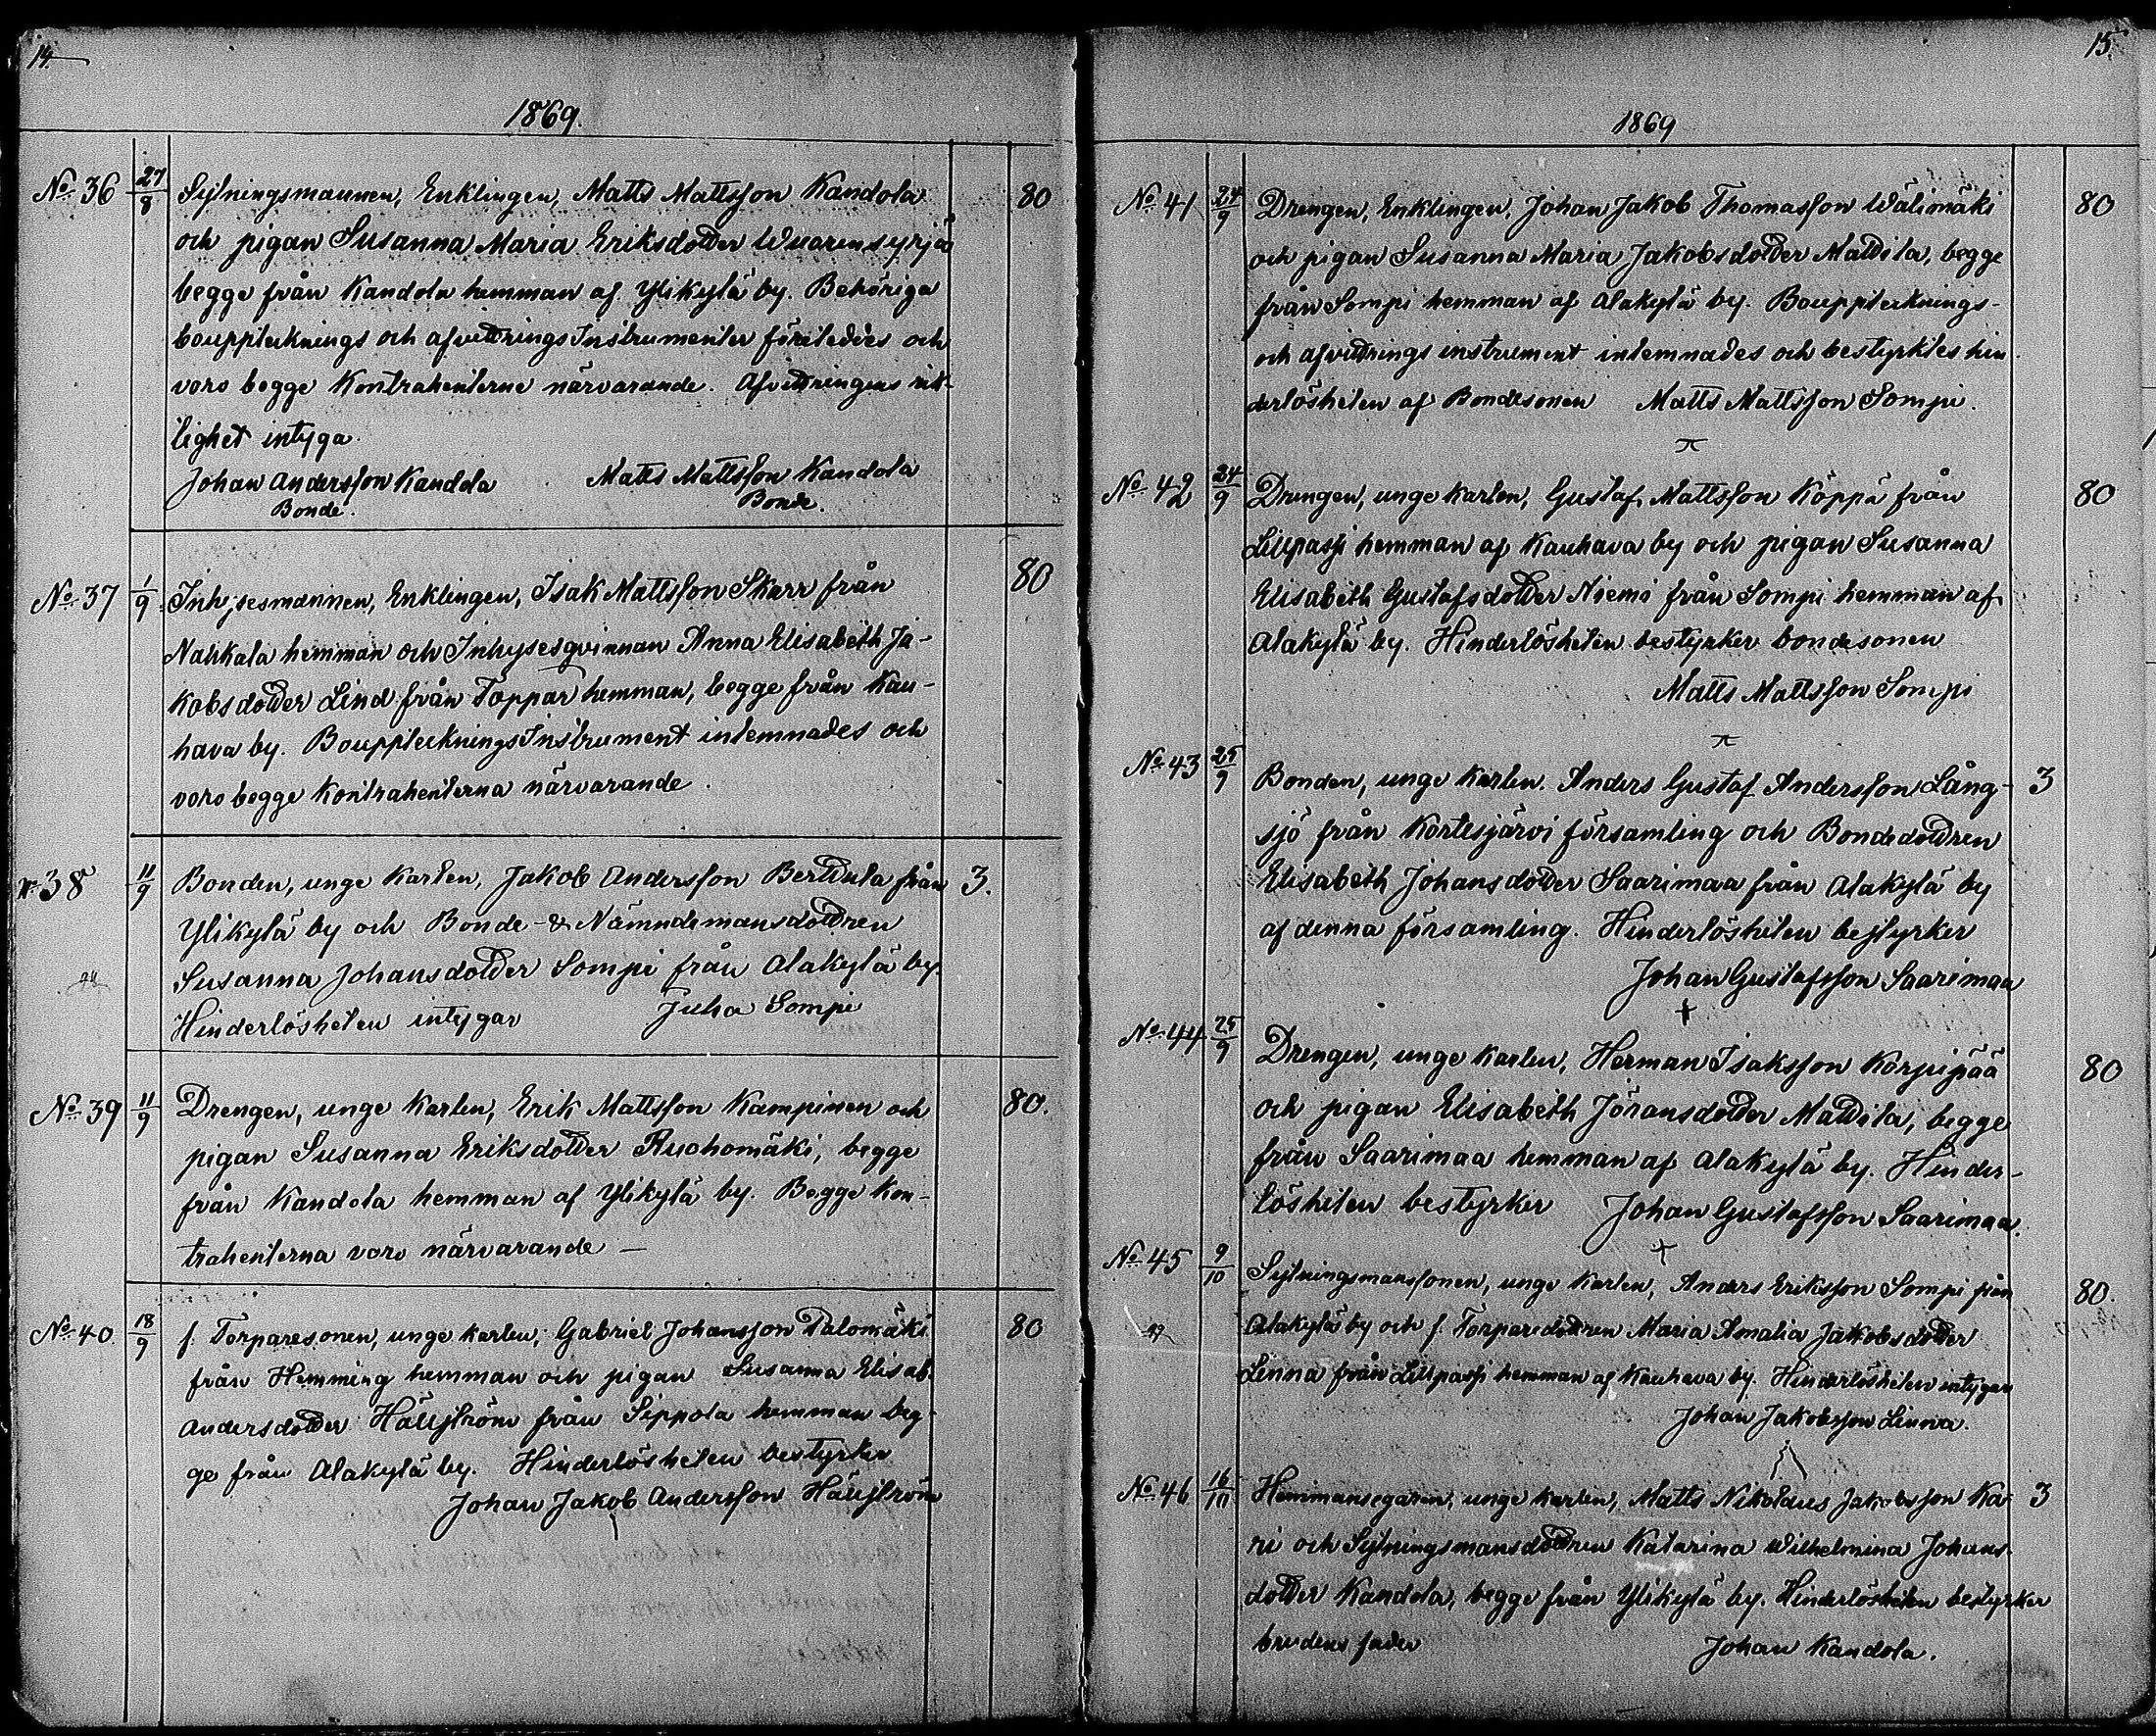 14.
1869.
No 36 27/8 Sytningsmannen, Enklingen, Matts Mattsson Kandola 80
och pigan Susanna Maria Eriksdotter Wuorensyrjä
begge från Kandola hemman af Ylikylä by. Behöriga
bouppteknings och afvittrings Instrumenter företeddes och
voro begge Kontrahenterne närvarande. Afvittringens rik-
tighet intyga
Johan Andersson Kandola Matts Mattsson Kandola
Bonde. Bonde.
No 37 1/9 Inhysesmannen, Enklingen, Isak Mattsson Skarr från 80
Nahkala hemman och Inhysesqvinnan Anna Elisabeth Ja-
kobsdotter Lind från Töppar hemman, begge från Kau-
hava by. Bouppteknings Instrument inlemnades och
voro begge Kontrahenterna närvarande.
No 38 11/9 Bonden, unge karlen, Jakob Andersson Berttula från 3.
Ylikylä by och Bonde- & Nämndemansdottren
Susanna Johansdotter Sompi från Alakylä by.
Hinderlösheten intygar Juha Sompi
No 39 11/9 Drengen, unge karlen, Erik Mattsson Kampinen och 80.
pigan Susanna Eriksdotter Ruohomäki, begge
från Kandola hemman af Ylikylä by. Begge Kon-
trahenterna voro närvarande —
No 40 18/9 f. Torparesonen, unge karlen, Gabriel Johansson Palomäki 80
från Hemming hemman och pigan Susanna Elisab.
Andersdotter Hällström från Sippola hemman beg-
ge från Alakylä by. Hinderlösheten bestyrker
Johan Jakob Andersson Hällström
15.
1869
No 41 24/9 Drengen, Enklingen, Johan Jakob Thomasson Wälimäki 80
och pigan Susanna Maria Jakobsdotter Mattila, begge
från Sompi hemman af Alakylä by. Bouppteknings-
och afvittrings instrument inlemnades och bestyrktes hin-
derlösheten af Bondesonen Matts Mattsson Sompi.
No 42 24/9 Drengen, unge karlen, Gustaf Mattsson Köppä från 80
Lillpassi hemman af Kauhava by och pigan Susanna
Elisabeth Gustafsdotter Niemi från Sompi hemman af
Alakylä by. Hinderlösheten bestyrker bondesonen
Matts Mattsson Sompi
No 43 25/9 Bonden, unge karlen. Anders Gustaf Andersson Lång- 3
sjö från Kortesjärvi församling och Bondedottren
Elisabeth Johansdotter Saarimaa från Alakylä by
af denna församling. Hinderlösheten bestyrker
Johan Gustafsson Saarimaa
No 44 25/9 Drengen, unge karlen, Herman Isaksson Korpipää 80
och pigan Elisabeth Jöransdotter Mattila, begge
från Saarimaa hemman af Alakylä by. Hinder-
lösheten bestyrker Johan Gustafsson Saarimaa.
No 45 9/10 Sytningsmanssonen, unge karlen, Anders Eriksson Sompi från 80.
Alakylä by och f. Torparedottren Maria Amalia Jakobsdotter
Linna från Lillpassi hemman af Kauhava by. Hinderlösheten intygar
Johan Jakobsson Linna.
No 46 16/10 Hemmansegaren, unge karlen, Matts Nikolaus Jakobsson Ka- 3
ri och Sytningsmansdottren Katarina Wilhelmina Johans-
dotter Kandola, begge från Ylikylä by. Hinderlösheten bestyrker
brudens fader Johan Kandola.